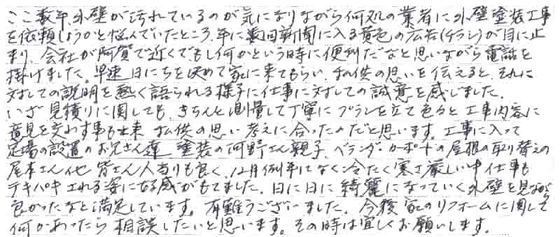 ここ数年外壁が汚れているのが気になりながら何処の業者に外壁塗装工事
を依頼しようかと悩んでいたところ、年に数回新聞に入る 広告(チラシ)が目に止
まり、会社が阿賀で近くでもし何かという時に便利だなと思いながら電話を
掛けました。早速、日にちを決めて家に来てもらい、私供の思いを伝えると、それに
対しての説明を熱く語られる様子に仕事に対しての誠意を感じました。
いざ見積りに関しても、きちんと測量して丁寧にプランを立て色々と工事内容に
意見を交わす事も出来、私供の思い考えに合ったのだと思います。工事に入って
足場の設置のお兄さん達、塗装の河野さん親子、ベランダ・カーポートの屋根の取り替えの
尾本さん他、皆さん人当りも良く、12月例年になく冷たく寒さ厳しい中仕事も
テキパキとされる姿に好感がもてました。日に日に綺麗になっていく外壁を見るが
良かったなと満足しています。有難うございました。今後、家のリフォームに関して
何かあったら相談したいと思います。その時は宜しくお願いします。